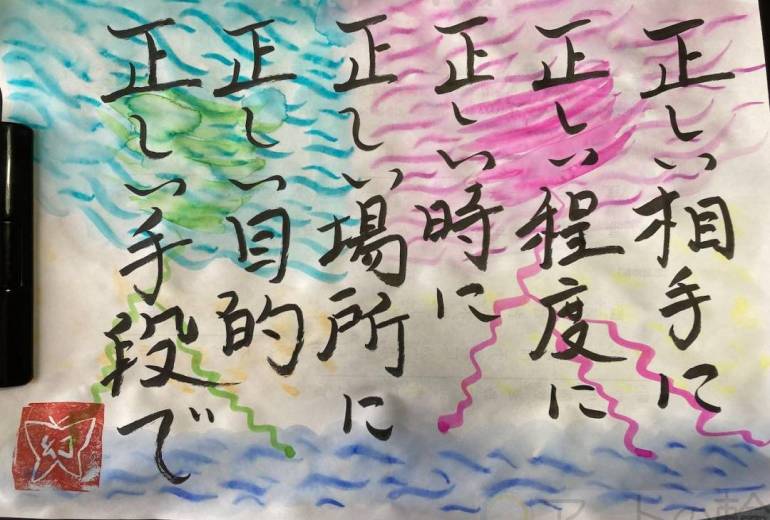 正しい相手に
正しい程度に
正しい時に
正しい場所に
正しい目的
正しい手段で
幻